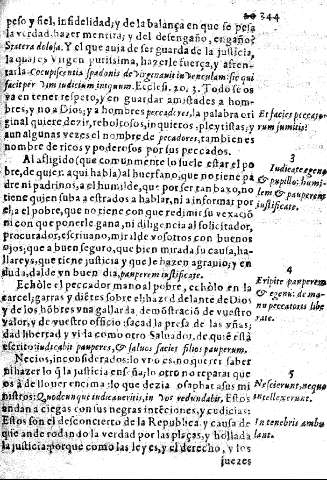 344
peso y fiel, infidelidad; y de la balança en que se pesa
la verdad, hazer mentira; y del desengaño, engaño?
Statera dolosa. Y el que auia de ser guarda de la justicia,
la qual es Virgen purissima, hazerle fuerça, y afren-
tarla. Cocupiscentia spadonis de virginauit iuvenculam: sic qui
facit per vim iudicium iniquum. Eccles. 20, 3. Todo se os
va en tener respeto, y en guardar amistades a hom-
bres, y no a Dios; y a hombres pecadores, la palabra ori
ginal quiere dezir, reboltosos, inquietos, pleytistas; y
aun algunas vezes el nombre de pecadores, tambien es
nombre de ricos y poderosos por sus pecados.
Al afligido (que comunmente lo suele estar el po
bre, de quien aqui habla) al huerfano, que no tiene pa
dre ni padrinos, a el humilde, que por ser tan baxo, no
tiene quien suba a estrados a hablar, ni a informar por
el; a el pobre, que no tiene con que redimir su vexació
ni con que ponerle gana, ni diligencia al solicitador,
procurador, escriuano, miralde vosotros con buenos
ojos; que a buen seguro, que bien mirada su causa, ha-
llareys, que tiene justicia y que le hazen agrauio; y en
duda, dalde vn buen dia, pauperem iustificate.
Echòle el peccador mano al pobre, echòlo en la
carcel; garras y dietes sobre el; hazed delante de Dios
y de los hòbres vna gallarda demostració de vuestro
valor, y de vuestro officio: sacad la presa de las vñas;
dad libertad, y vida como otro Saluador, de quié està
escrito: iudicabit pauperes, & saluos faciet filios pauperum.
Necios, inconsiderados: lo vno es, no querer saber
ni hazer lo q̃ la justicia enseña; lo otro no reparar que
os à de llouer encima: lo que dezia osaphat a sus mi
nistros: Quodcunque iudicaueritis, in vos redundabit. Estos
andan a ciegas con sus negras intéciones, y cudicias:
Estos son el desconcierto de la Republica, y causa de
que ande rodando la verdad por las plaças, y hollada
la justicia: porque como las leyes, y el derecho, y los
juezes
Et facies peccato-
rum sumitis?
3
Iudicate egeno
& pupillo: humi-
lem & pauperem
iustificate.
4
Eripite pauperem
& egenū: de ma-
nu peccatoris libe
rate.
5
Nescierunt, neque
intellexerunt.
In tenebris ambu
lant.